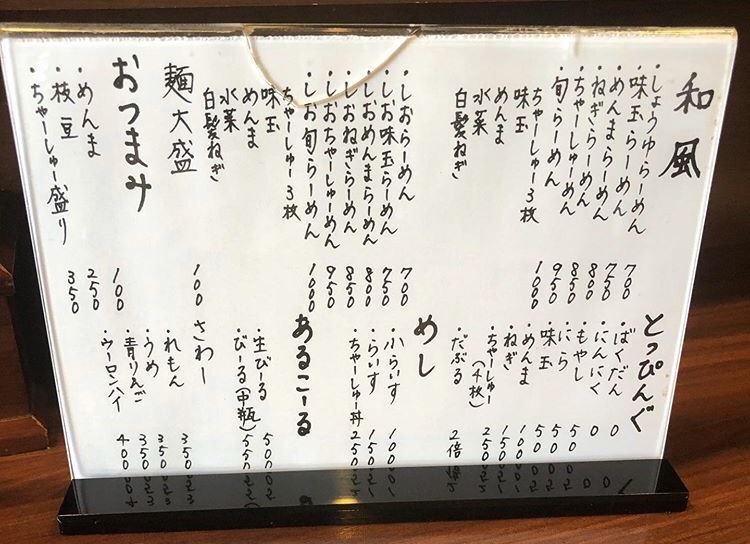 和風
・しょうゆらーめん 700
・味玉らーめん 750
・めんまらーめん 800
・ねぎらーめん 850
・ちゃーしゅーめん 950
・旬らーめん 1000
ちゃーしゅー3枚
味玉
めんま
水菜
白髪ねぎ
・しおらーめん 700
・しお味玉らーめん 750
・しおめんまらーめん 800
・しおねぎらーめん 850
・しおちゃーしゅーめん 950
・しお旬らーめん 1000
ちゃーしゅー3枚
味玉
めんま
水菜
白髪ねぎ
麺大盛 100
おつまみ
・めんま 100
・枝豆 250
・ちゃーしゅー盛り 350
とっぴんぐ
・ばくだん 0
・にんにく 0
・もやし 50
・にら 50
・味玉 50
・めんま 100
・ねぎ 150
・ちゃーしゅー(4枚) 250
・だぶる 2倍
めし
・小らいす 100
・らいす 150
・ちゃーしゅー丼 250
あるこーる
・生びーる 500
・びーる(中瓶) 550
さわー
・れもん 350
・うめ 350
・青りんご 350
・ウーロンハイ 400